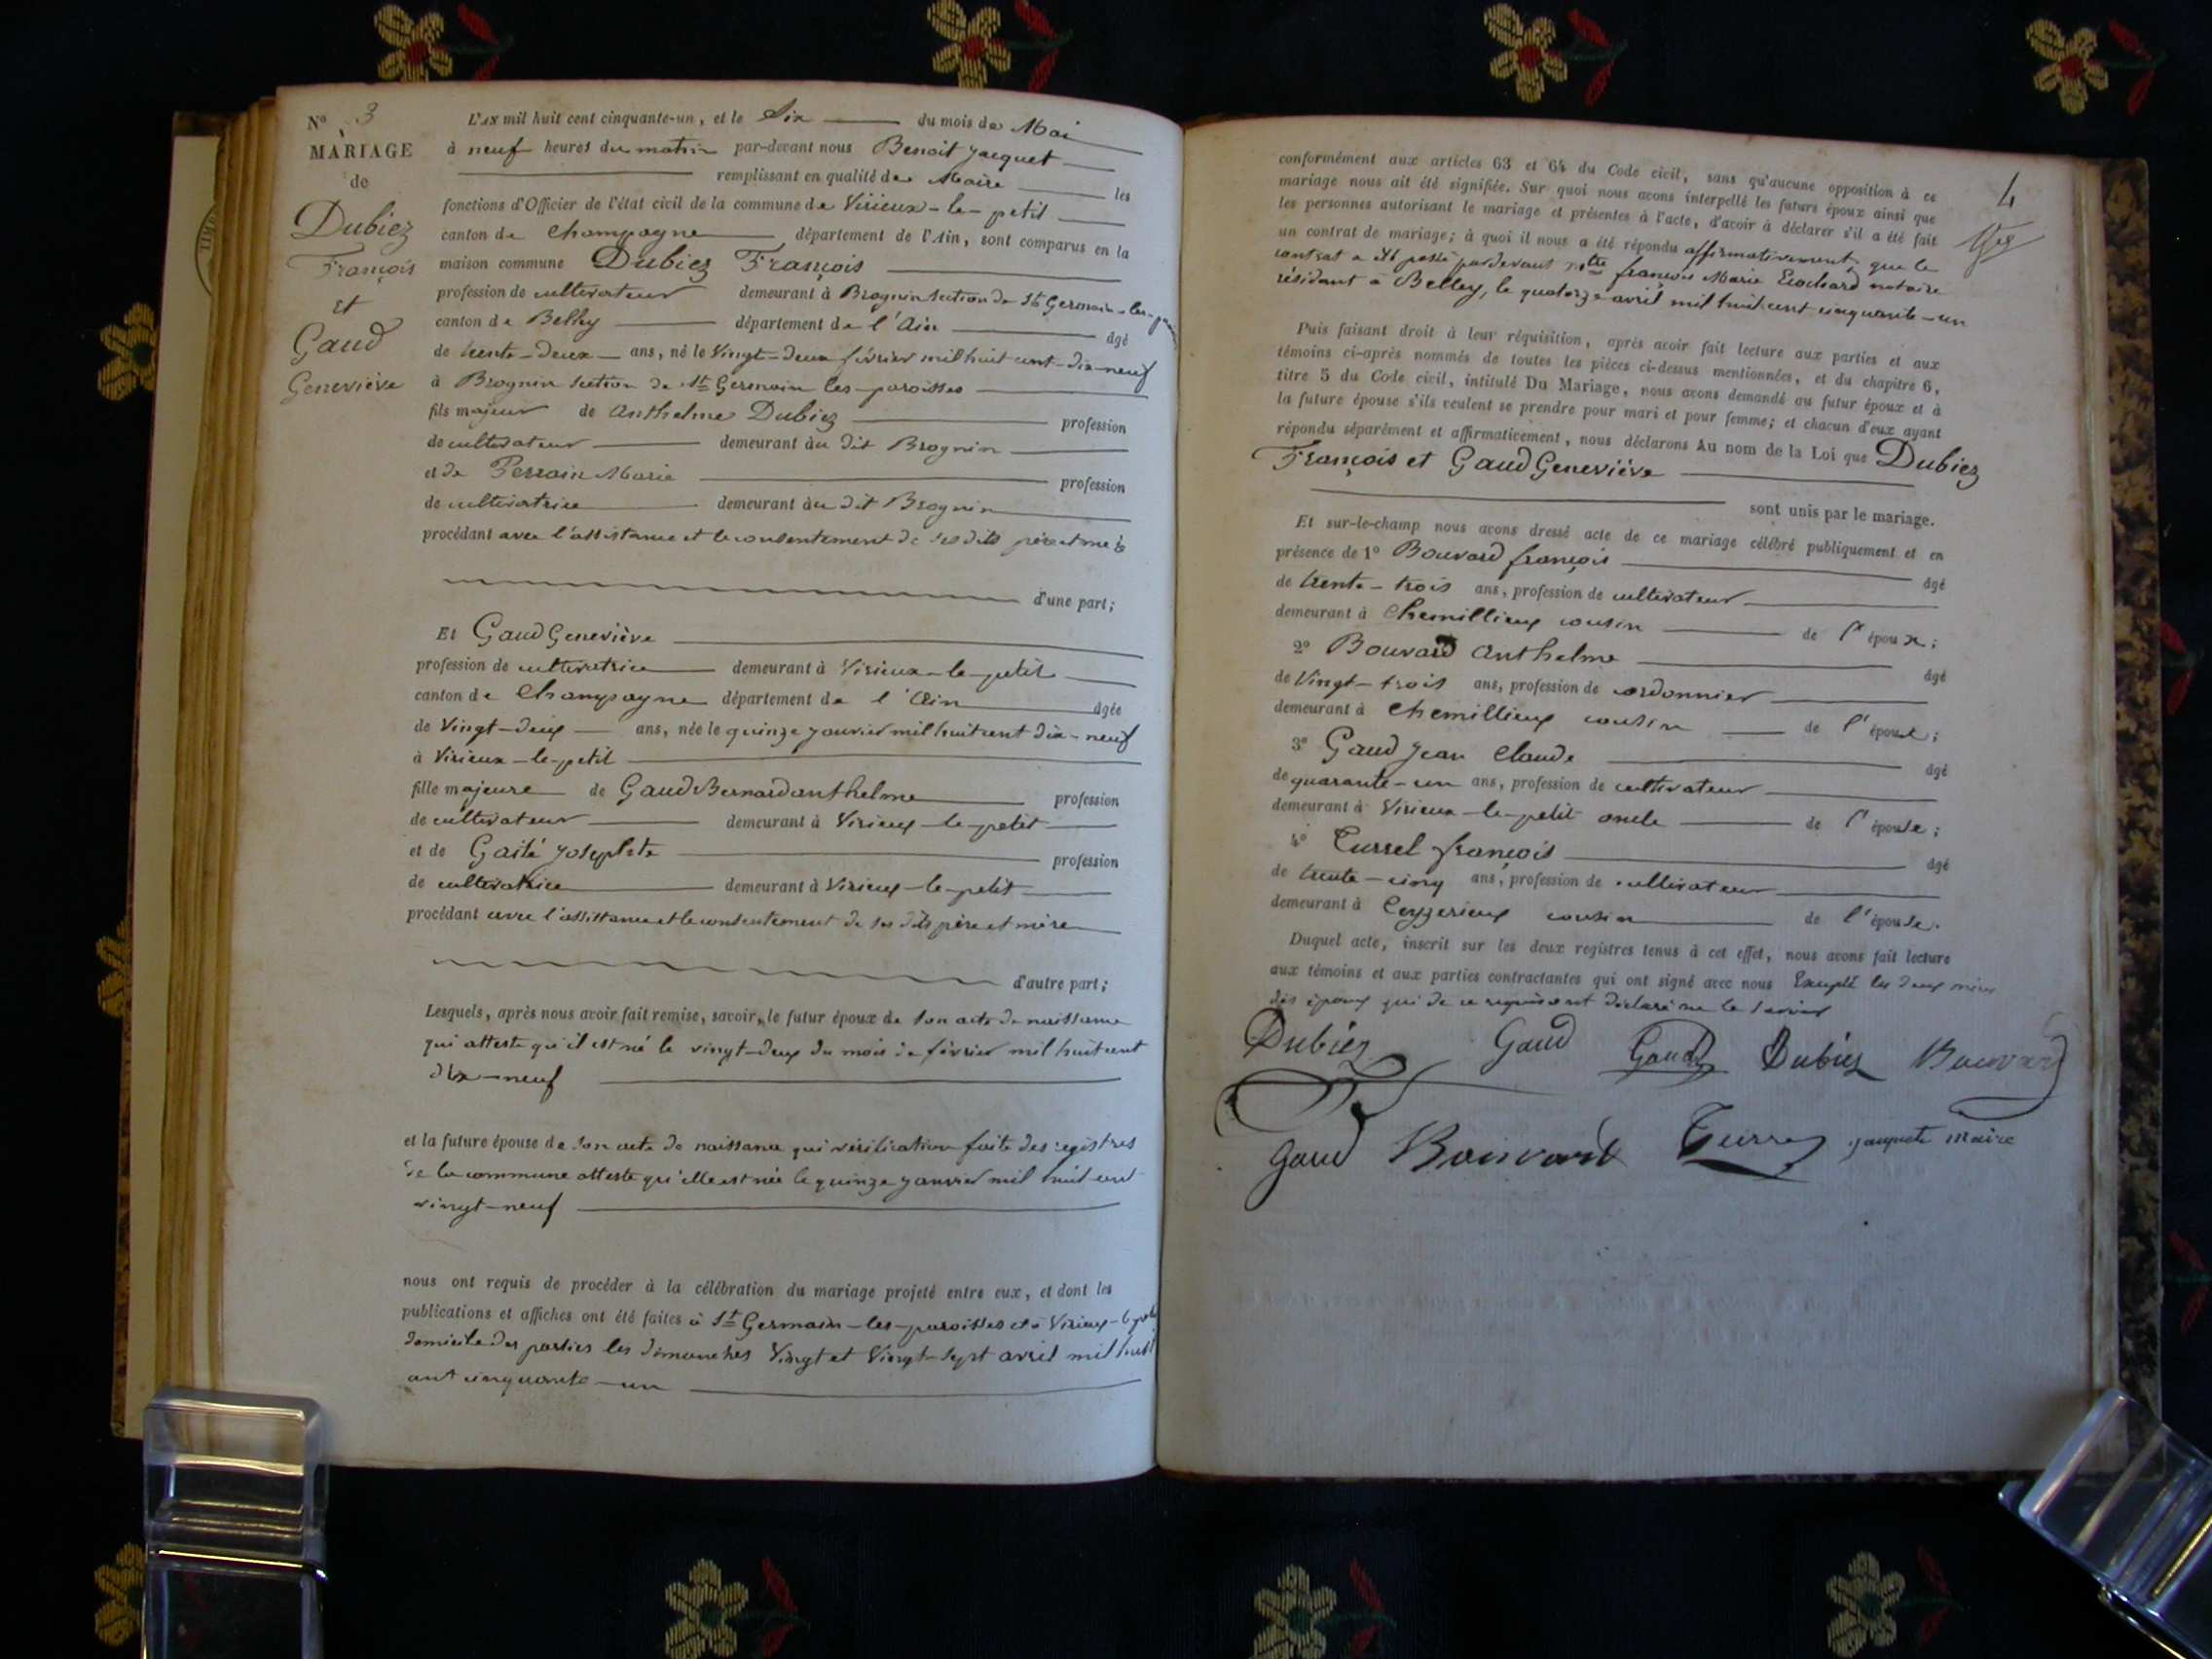 N° 3
MARIAGE
de
Dubiez
François
et
Gaud
Geneviève
L'AN mil huit cent cinquante-un, et le Six du mois de Mai
à neuf heures du matin par-devant nous Benoit Jacquet
remplissant en qualité de Maire les
fonctions d'Officier de l'état civil de la commune de Virieux-le-petit
canton de Champagne département de l'Ain, sont comparus en la
maison commune Dubiez François
profession de cultivateur demeurant à Brognin section de St Germain-les-
canton de Belley département de l'Ain âgé
de trente-deux ans, né le vingt-deux février mil huit cent-dix-neuf
à Brognin section de St Germain les-paroisses
fils majeur de Anthelme Dubiez profession
de cultivateur demeurant au dit Brognin
et de Perrain Marie profession
de cultivatrice demeurant au dit Brognin
procédant avec l'assistance et le consentement de ses dits père et mère
d'une part;
Et Gaud Geneviève
profession de cultivatrice demeurant à Virieux-le-petit
canton de Champagne département de l'Ain âgée
de vingt-deux ans, née le quinze janvier mil huit cent dix-neuf
à Virieux-le-petit
fille majeure de Gaud Bernard anthelme profession
de cultivateur demeurant à Virieux-le-petit
et de Gaité Josephte profession
de cultivatrice demeurant à Virieux-le-petit
procédant avec l'assistance et le consentement de ses dits père et mère
d'autre part;
Lesquels, après nous avoir fait remise, savoir, le futur époux de son acte de naissance
qui atteste qu'il est né le vingt-deux du mois de février mil huit cent
dix-neuf
et la future épouse de son acte de naissance qui vérification faite des registres
de la commune atteste qu'elle est née le quinze janvier mil huit cent
vingt-neuf
nous ont requis de procéder à la célébration du mariage projeté entre eux, et dont les
publications et affiches ont été faites à St Germain-les-paroisses et à Virieux-le-petit
domicile des parties les dimanches vingt et vingt-sept avril mil huit
cent cinquante-un
4
conformément aux articles 63 et 64 du Code civil, sans qu'aucune opposition à ce
mariage nous ait été signifiée. Sur quoi nous avons interpellé les futurs époux ainsi que
les personnes autorisant le mariage et présentes à l'acte, d'avoir à déclarer s'il a été fait
un contrat de mariage; à quoi il nous a été répondu affirmativement, que le
contrat a été passé pardevant Mtre françois Marie notaire
résidant à Belley, le quatorze avril mil huit cent cinquante-un
Puis faisant droit à leur réquisition, après avoir fait lecture aux parties et aux
témoins ci-après nommés de toutes les pièces ci-dessus mentionnées, et du chapitre 6,
titre 5 du Code civil, intitulé Du Mariage, nous avons demandé au futur époux et à
la future épouse s'ils veulent se prendre pour mari et pour femme; et chacun d'eux ayant
répondu séparément et affirmativement, nous déclarons Au nom de la Loi que Dubiez
François et Gaud Geneviève
sont unis par le mariage.
Et sur-le-champ nous avons dressé acte de ce mariage célébré publiquement et en
présence de 1° Bouvard françois âgé
de trente-trois ans, profession de cultivateur
demeurant à Chemillieux cousin de l'époux;
2° Bouvard anthelme âgé
de vingt-trois ans, profession de cordonnier
demeurant à Chemillieux cousin de l'époux;
3° Gaud Jean Claude âgé
de quarante-un ans, profession de cultivateur
demeurant à Virieux-le-petit oncle de l'épouse;
4° Turrel françois âgé
de trente-cinq ans, profession de cultivateur
demeurant à Ceyzerieux cousin de l'épouse.
Duquel acte, inscrit sur les deux registres tenus à cet effet, nous avons fait lecture
aux témoins et aux parties contractantes qui ont signé avec nous Excepté les deux mères
des époux qui de ce requises ont déclaré ne le savoir
Dubiez Gaud Gaud Dubiez Bouvard
Gaud Bouvard jaquete maire